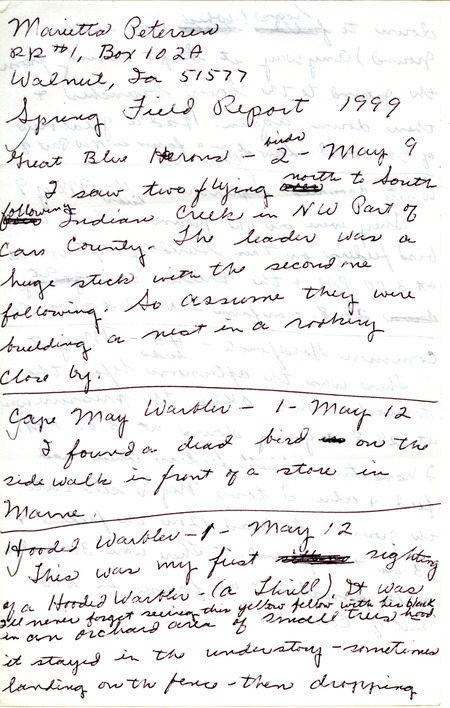 Marietta Petersen
RR #1, Box 102A
Walnut, Ia 51577
Spring Field Report 1999
Great Blue Herons - 2 birds - May 9
I saw two flying north to South
following Indian Creek in NW Part of
Cass County. The leader was a
huge stick with the second one
following. So assume they were
building a nest in a rookery
close by.
Cape May Warbler - 1 - May 12
I found a dead bird on the
sidewalk in front of a store in
Marne.
Hooded Warbler - 1 - May 12
This was my first sighting
of a Hooded Warbler - (a Thrill). It was
I'll never forget seeing this yellow fellow with his black hood.
in an orchard area of small trees
it stayed in the understory - sometimes
landing on th fence - then dropping